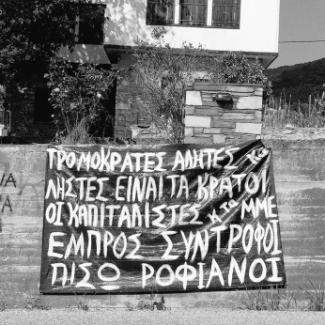 ΤΡΟΜΟΚΡΑΤΕΣ ΑΛΗΤΕΣ και
ΛΗΣΤΕΣ ΕΙΝΑΙ ΤΑ ΚΡΑΤΟΙ
ΟΙ ΧΑΠΙΤΑΛΙΣΤΕΣ κ τα ΜΜΕ
ΕΜΠΡΟΣ ΣΥΝΤΡΟΦΟΙ
ΠΙΣΩ ΡΟΦΙΑΝΟΙ